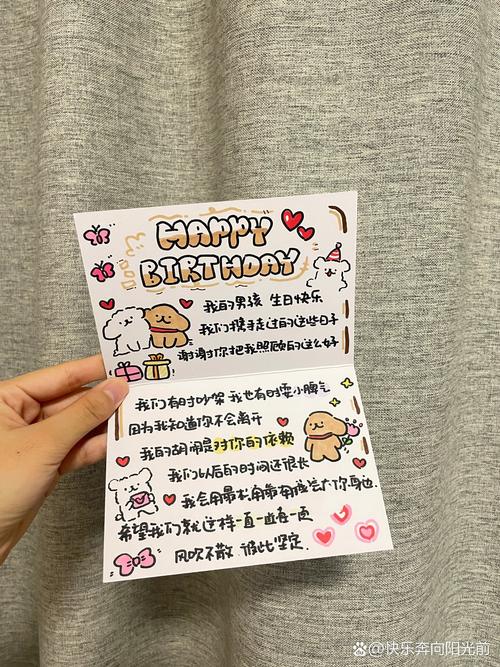 HAPPY
BIRTHDAY
我的男孩 生日快乐
我们携手走过的这些日子
谢谢你把我照顾的这么好
我们有时吵架 我也有时耍小脾气
因为我知道你不会离开
我的胡闹是对你的依赖
我们以后的时间还很长
我会用最
你身边.
希望我们就这样一直一直
风吹不散 彼此坚定.
@快乐奔向阳光前